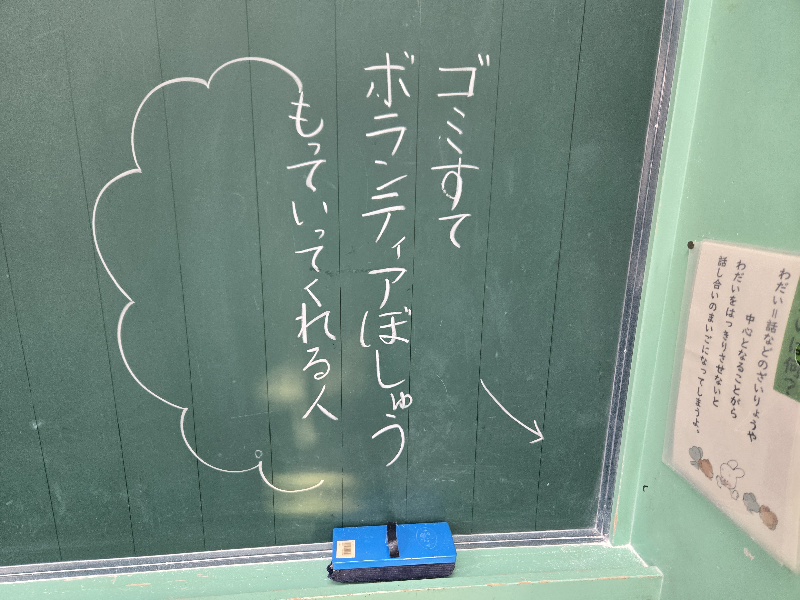 ゴミすて
ボランティアぼしゅう
もっていってくれる人
わだい=話などのざいりょうや
中心となることがら
わだいをはっきりさせないと
話し合いのまいごになってしまうよ。